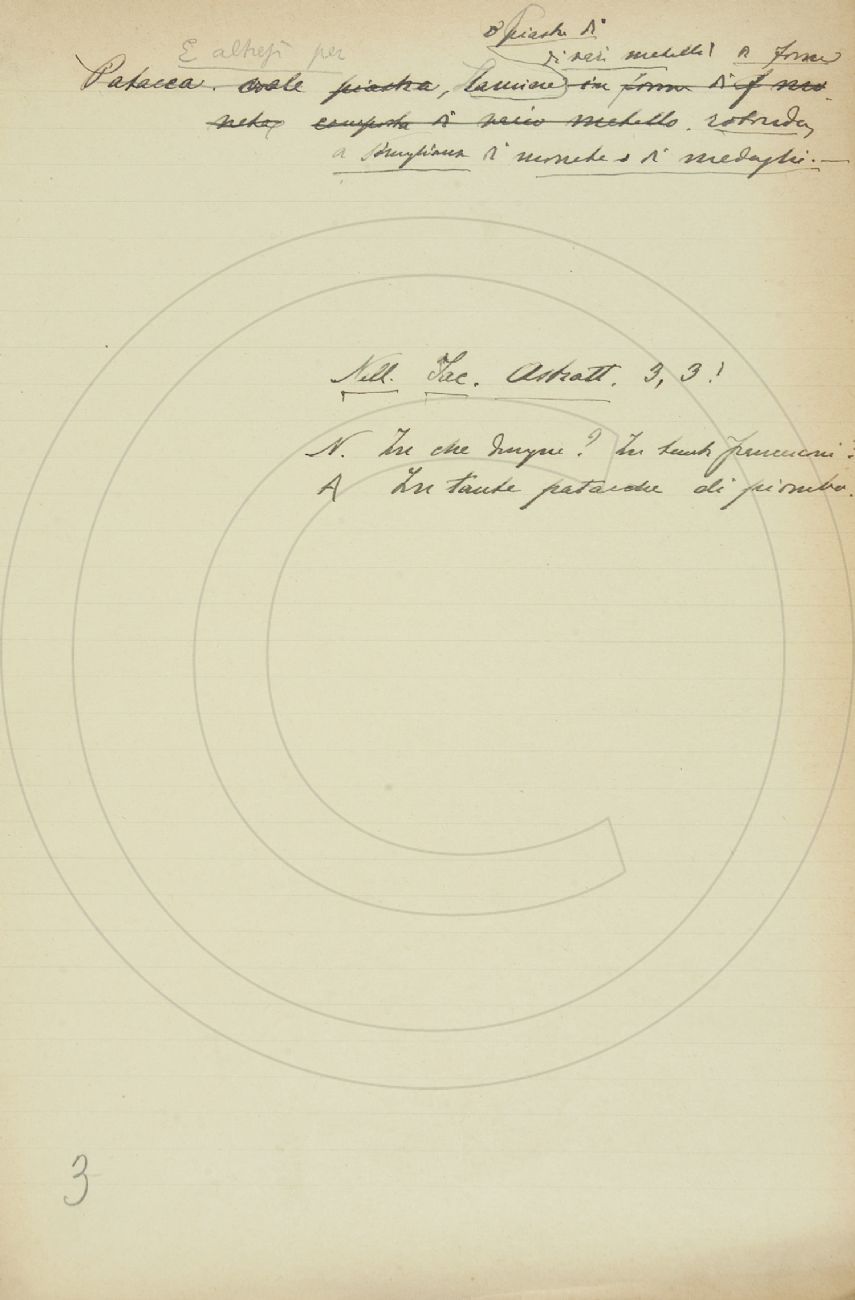 o piastre di
E altresì per
di vari metelli a forma
Patacca. vale piastra, lamine in forma di f mo
neta, composta di vario metallo. rotonda,
a somiglianza di monete o di medaglie. —
Nell. Iac. Astratt. 3, 3:
N. In che dunque? In tanti francesconi?
A In tante patacche di piombo.
3